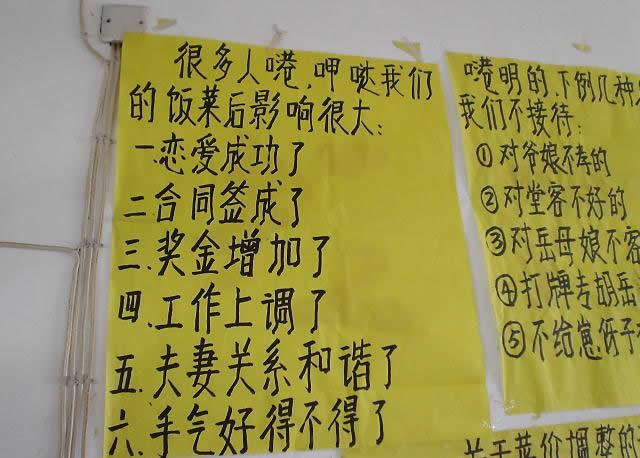 很多人,呷哒我们
的饭菜后影响很大:
一恋爱成功了
二合同签成了
三.奖金增加了
四.工作上调了
五.夫妻关系和谐了
六.手气好得不得了
明的.下例几种
我们不接待:
①对爷娘不孝的
②对堂客不好的
③对岳母娘不客
④打牌专胡岳
⑤不给崽伢子
关于菜价调整的